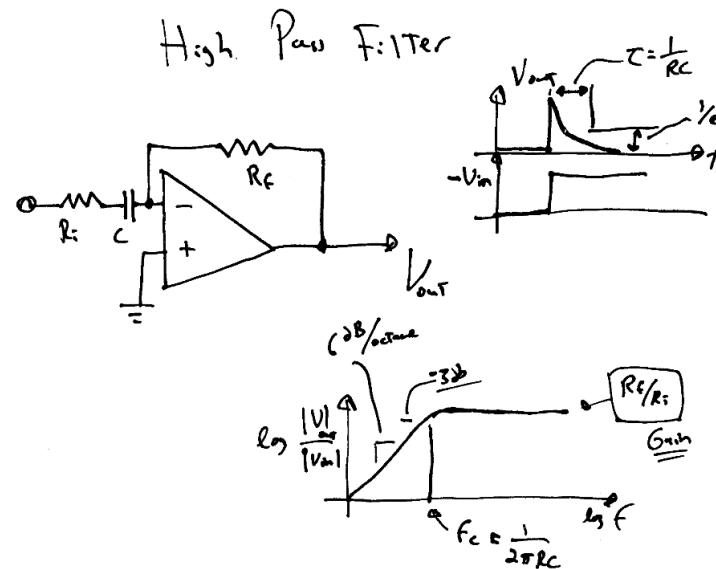 High Pass Filter
Vout
τ = 1/RC
1/e
-Vin
Rf
Ri
C
-
+
Vout
6 dB/octave
-3db
log |V|out / |Vin|
Rf/Ri
Gain
log F
Fc = 1/2πRC